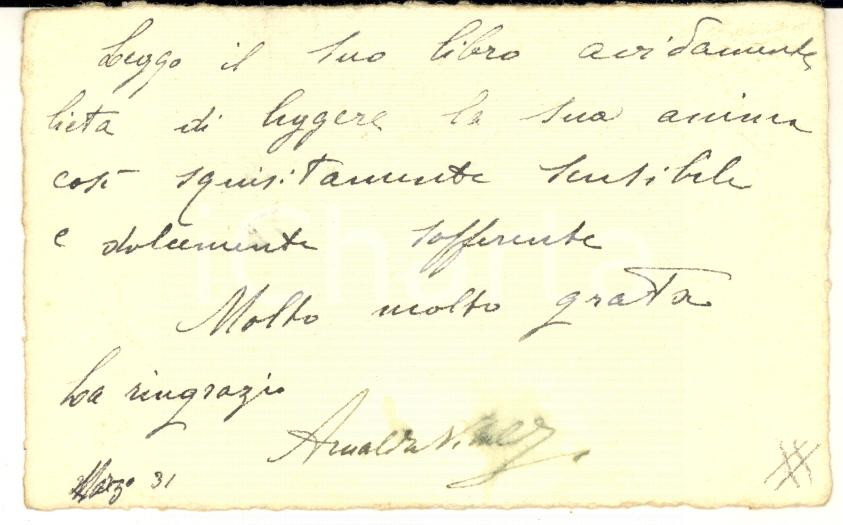 Leggo il suo libro avidamente,
lieta di leggere la sua anima
così squisitamente sensibile
e dolcemente sofferente
Molto molto grata
La ringrazio
Arnalda
Marzo 31